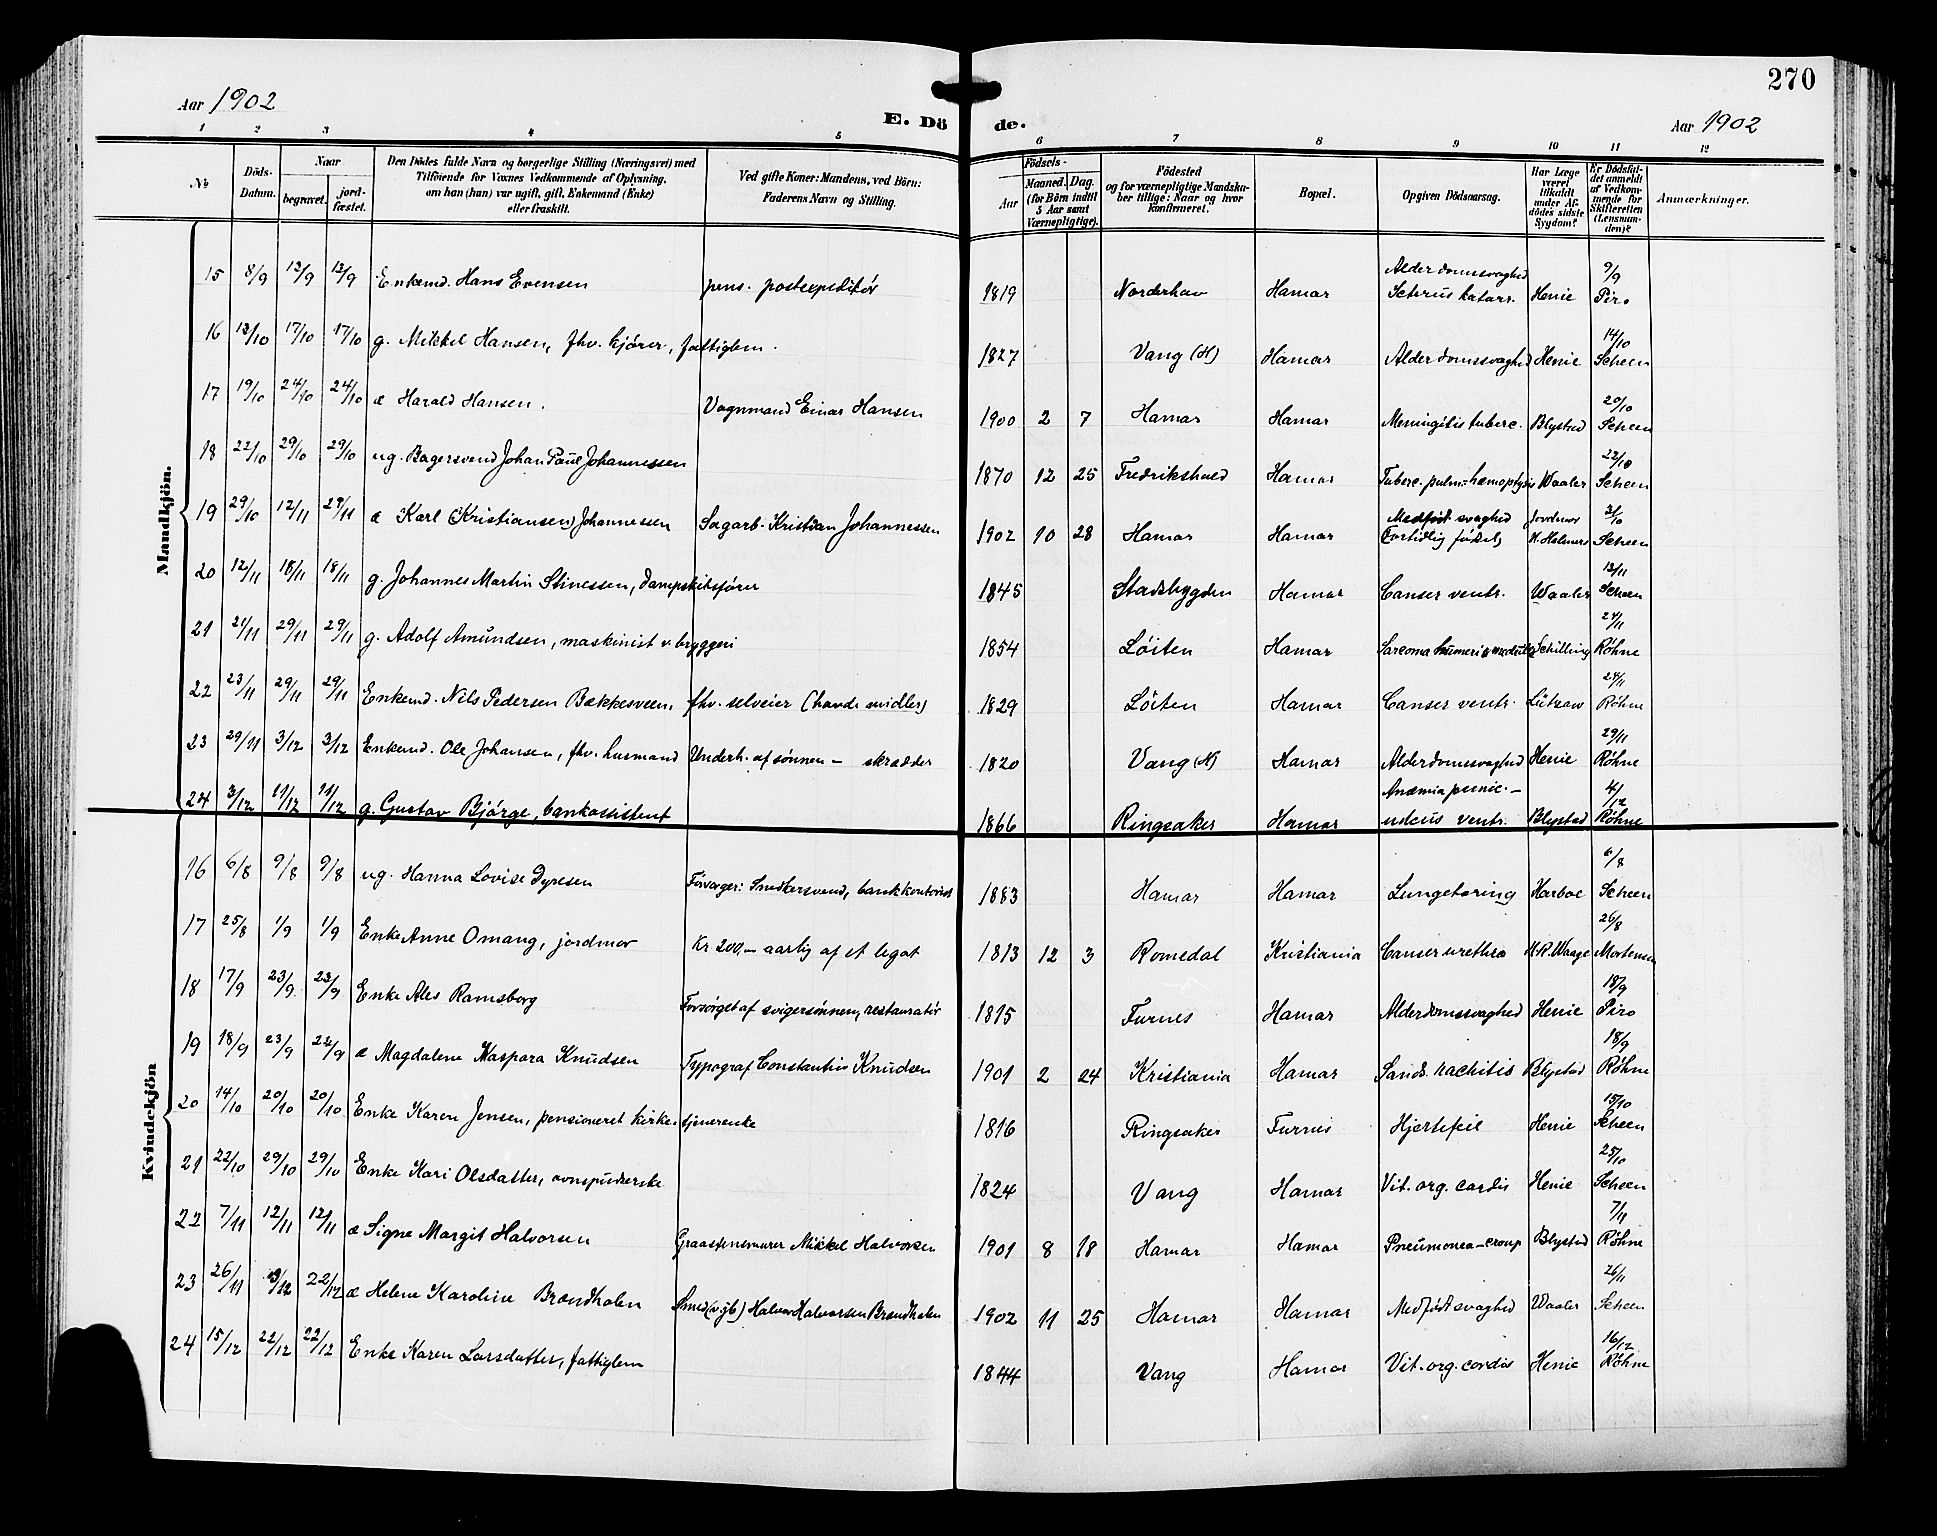 270
Aar 1902
E. Dö de.
Aar 1902
1 2 3 4 5 6 7 8 9 10 11 12
№ Döds-Datum. Naar begravet. jordfæstet. Den Dödes fulde Navn og borgerlige Stilling (Næringsvei) med Tilföiende for Voxnes Vedkommende af Oplysning, om han (hun) var ugift, gift, Enkemand (Enke) eller fraskilt. Ved gifte Koner: Mandens, ved Börn: Faderens Navn og Stilling. Födsels- Aar Maaned. Dag. (for Börn indtil 5 Aar samt Værnepligtige). Födested og for værnepligtige Mandskaber tillige: Naar og hvor Konfirmeret. Bopæl. Opgiven Dödsaarsag. Har Læge været tilkaldt under Afdödes sidste Sygdom? Er Dödsfaldet anmeldt af Vedkommende for Skifteretten (Lensmanden)? Anmærkninger.
Mandkjön.
15 8/9 13/9 13/9 Enkemd. Hans Evensen pens. postexpeditör 1819 Norderhov Hamar Alderdomssvaghed katarr. Henie 9/9 Piro
16 13/10 17/10 17/10 g. Mikkel Hansen, fhv. kjörer, fattiglem. 1827 Vang (H) Hamar Alderdomssvaghed Henie 14/10 Scheen
17 19/10 24/10 24/10 æ Harald Hansen. Vognmand Einar Hansen 1900 2 7 Hamar Hamar Meningitis tuberc. Blystad 20/10 Scheen
18 22/10 29/10 29/10 ug. Bagersvend Johan Paul Johannessen 1870 12 25 Fredrikshald Hamar Tuberc. pulm.-hæmoptysis Waaler 22/10 Scheen
19 29/10 12/11 23/11 æ Karl (Kristiansen) Johannessen Sagarb. Kristian Johannessen 1902 10 28 Hamar Hamar Medfödt svaghed Fortidlig födsel Jordmor H. Holmers 31/10 Scheen
20 12/11 18/11 18/11 g. Johannes Martin Stinessen, Dampskibsförer 1845 Stadsbygden Hamar Canser ventr. Waaler 13/11 Scheen
21 21/11 29/11 29/11 g. Adolf Amundsen, maskinist v. bryggeri 1854 Löiten Hamar Sarcoma humeri Schilling 24/11 Röhne
22 23/11 29/11 29/11 Enkemd. Nils Pedersen Bækkesveen, fhv. selveier (havde midler) 1829 Löiten Hamar Canser ventr. Lützow 24/11 Röhne
23 29/11 3/12 3/12 Enkemd. Ole Johansen, fhv. husmand Underh. af sönnen – skrædder 1820 Vang (H) Hamar Alderdomssvaghed Henie 29/11 Röhne
24 3/12 11/12 11/12 g. Gustav Bjørge, bankassistent 1866 Ringsaker Hamar Anæmia pernic. – ulcus ventr. Blystad 4/12 Röhne
Kvindekjön
16 6/8 9/8 9/8 ug. Hanna Lovise Dyresen Forsørger: Snedkersvend, bankkontorist 1883 Hamar Hamar Lungetæring Harboe 6/8 Scheen
17 25/8 1/9 1/9 Enke Anne Omang, jordmor Kr 200,– aarlig af et legat 1813 12 3 Romedal Kristiania Canser urethra Waage 26/8 Mortensen
18 17/9 23/9 23/9 Enke Ales Ramsborg Forsørget af svigersönnen, restauratör 1815 Furnes Hamar Alderdomssvaghed Henie 18/9 Piro
19 18/9 23/9 22/9 æ Magdalene Kaspara Knudsen Typograf Constantin Knudsen 1901 2 24 Kristiania Hamar rachitis Blystad 18/9 Röhne
20 14/10 20/10 20/10 Enke Karen Jensen, pensioneret kirketjenerenke 1816 Ringsaker Furnes Hjertefeil Henie 15/10 Scheen
21 22/10 29/10 29/10 Enke Kari Olsdatter, ovnspudserske 1824 Vang Hamar Vit. org. cordis Henie 25/10 Scheen
22 7/11 12/11 12/11 æ Signe Margit Halvorsen Graastensmurer Mikkel Halvorsen 1901 8 18 Hamar Hamar Pneumonea–croup Blystad 7/11 Röhne
23 26/11 9/12 22/12 æ Helene Karoline Brændholen Smed (v. jb) Halvor Halvorsen Brændholen 1902 11 25 Hamar Hamar Medfödt svaghed Waaler 26/11 Scheen
24 15/12 22/12 22/12 Enke Karen Larsdatter, fattiglem 1844 Vang Hamar Vit. org. cordis Henie 16/12 Röhne